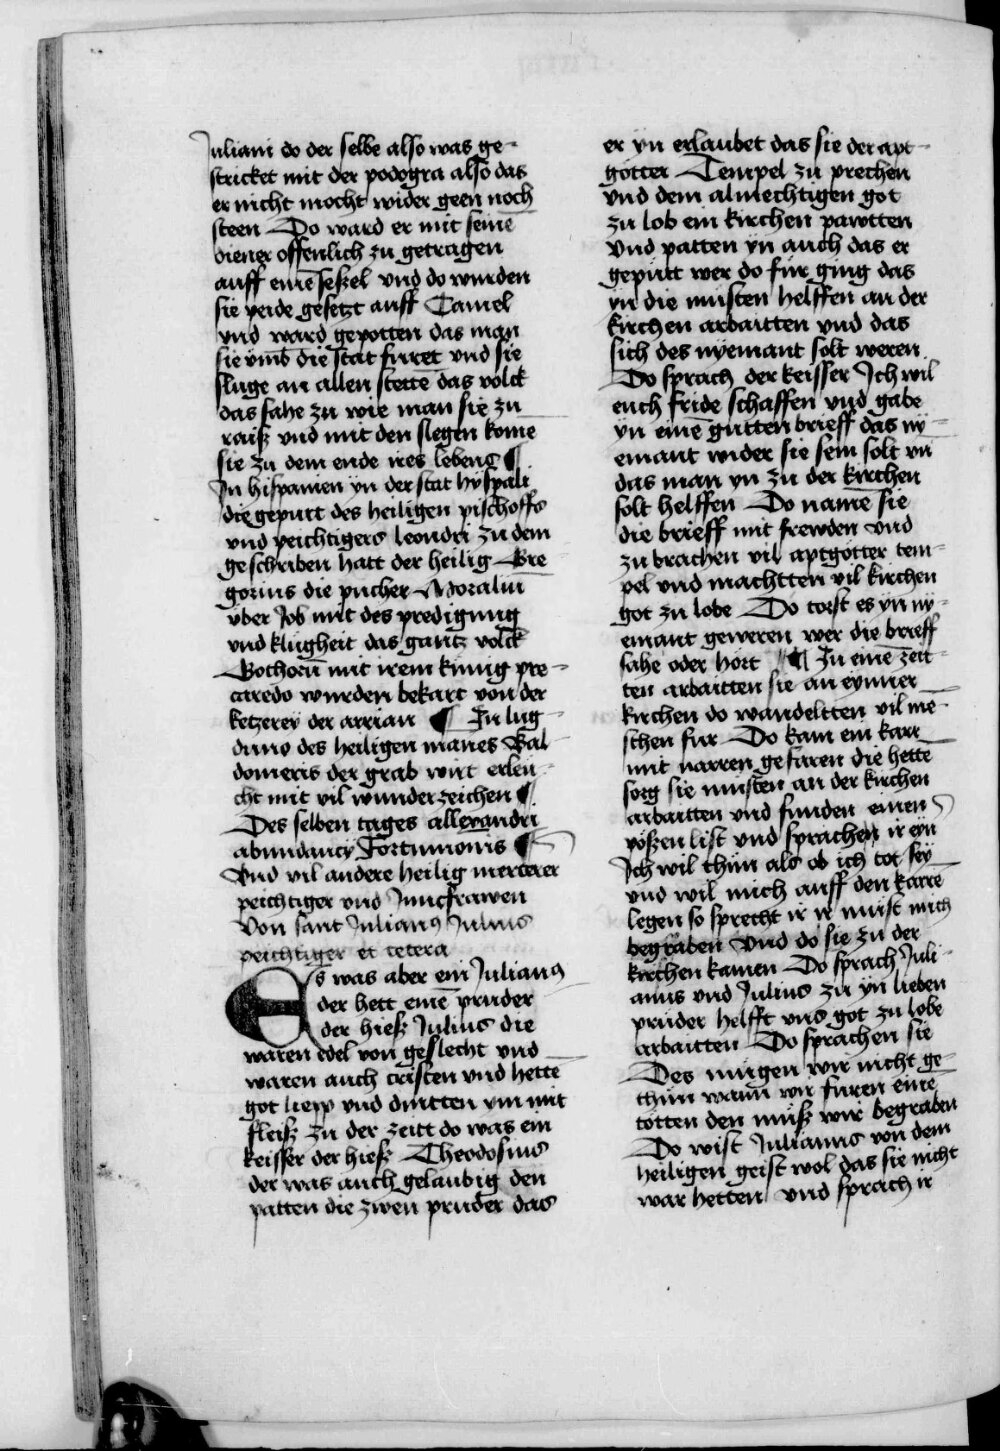 Juliani do der selbe also was ge-
stricket mit der podogra also das
er nicht mocht wider geen noch
steen Do ward er mit seinē
diener offenlich zu getragen
auff einē seßzel vnd do wurden
sie peide gesetzt auff Camel
vnd ward gepotten das man
sie vmb die stat furret vnd sie
sluge an allen stettē das volck
das sahe zu wie man sie zu
raiß vnd mit den slegen kome
sie zu dem ende ires lebens ¶
Jn hispanien yn der stat hyspali
die gepurt des heiligen pischoffs
vnd peichtigers leondri zu dem
geschriben hatt der heilig Gre
gorius die pucher Moraliū
vber Job mit des predigung
vnd klugheit das gantz volck
Gothorū mit irem kunig pre-
caredo wurden bekart von der
ketzerey der arrian ¶ Jn lug-
duno des heiligen manes Bal-
domeris der grab wirt erleu-
cht mit vil wunderzeichen ¶
Des selben tages allexandri
abundancy Fortunionis ¶
Vnd vil andere heilig merterer
peichtiger vnd Junckfrawen
Von sant Julianus Julius
peichtiger et cetera
Es was aber ein Julianus
der hett einē pruder
der hieß Julius die
waren edel von geslecht vnd
waren auch cristen vnd hettē
got liepp vnd dintten ym mit
fleiß zu der zeitt do was ein
keisser der hieß Theodosius
der was auch gelaubig den
patten die zwen pruder das
er yn erlaubet das sie der apt-
gotter Tempel zu prechen
vnd dem almechtigen got
zu lob ein kirchen pawtten
Vnd patten yn auch das er
geputt wer do fur ging das
yn die musten helffen an der
kirchen arbaitten vnd das
sich des nyemant solt weren
Do sprach der keisser Ich wil
euch fride schaffen vnd gabe
yn einē gutten brieff das ny-
emant wider sie sein solt vn̄
das man yn zu der kirchen
solt helffen Do namē sie
die brieff mit frewden vnd
zu brachen vil aptgotter tem-
pel vnd machtten vil kirchen
got zu lobe Do torst es yn ny-
emant geweren wer die brieff
sahe oder hort ¶ Zu einē zeit-
ten arbaitten sie an eynner
kirchen do wandeltten vil me-
schen fur Do kam ein karr
mit narren gefaren die hette
sorg sie musten an der kirchen
arbaitten vnd funden einen
poßzen list vnd sprachen ir eyn
Ich wil thun als ob ich tot sey
vnd wil mich auff den karre
legen so sprecht ir ir must mich
begraben Vnd do sie zu der
kirchen kamen Do sprach Juli-
anus vnd Julius zu yn lieben
pruder helfft vns got zu lobe
arbaitten Do sprachen sie
Des mugen wir nicht ge-
thun wann wir furen eine
totten den muß wir begraben
Do wist Julianus von dem
heiligen geist wol das sie nicht
war hetten vnd sprach ir